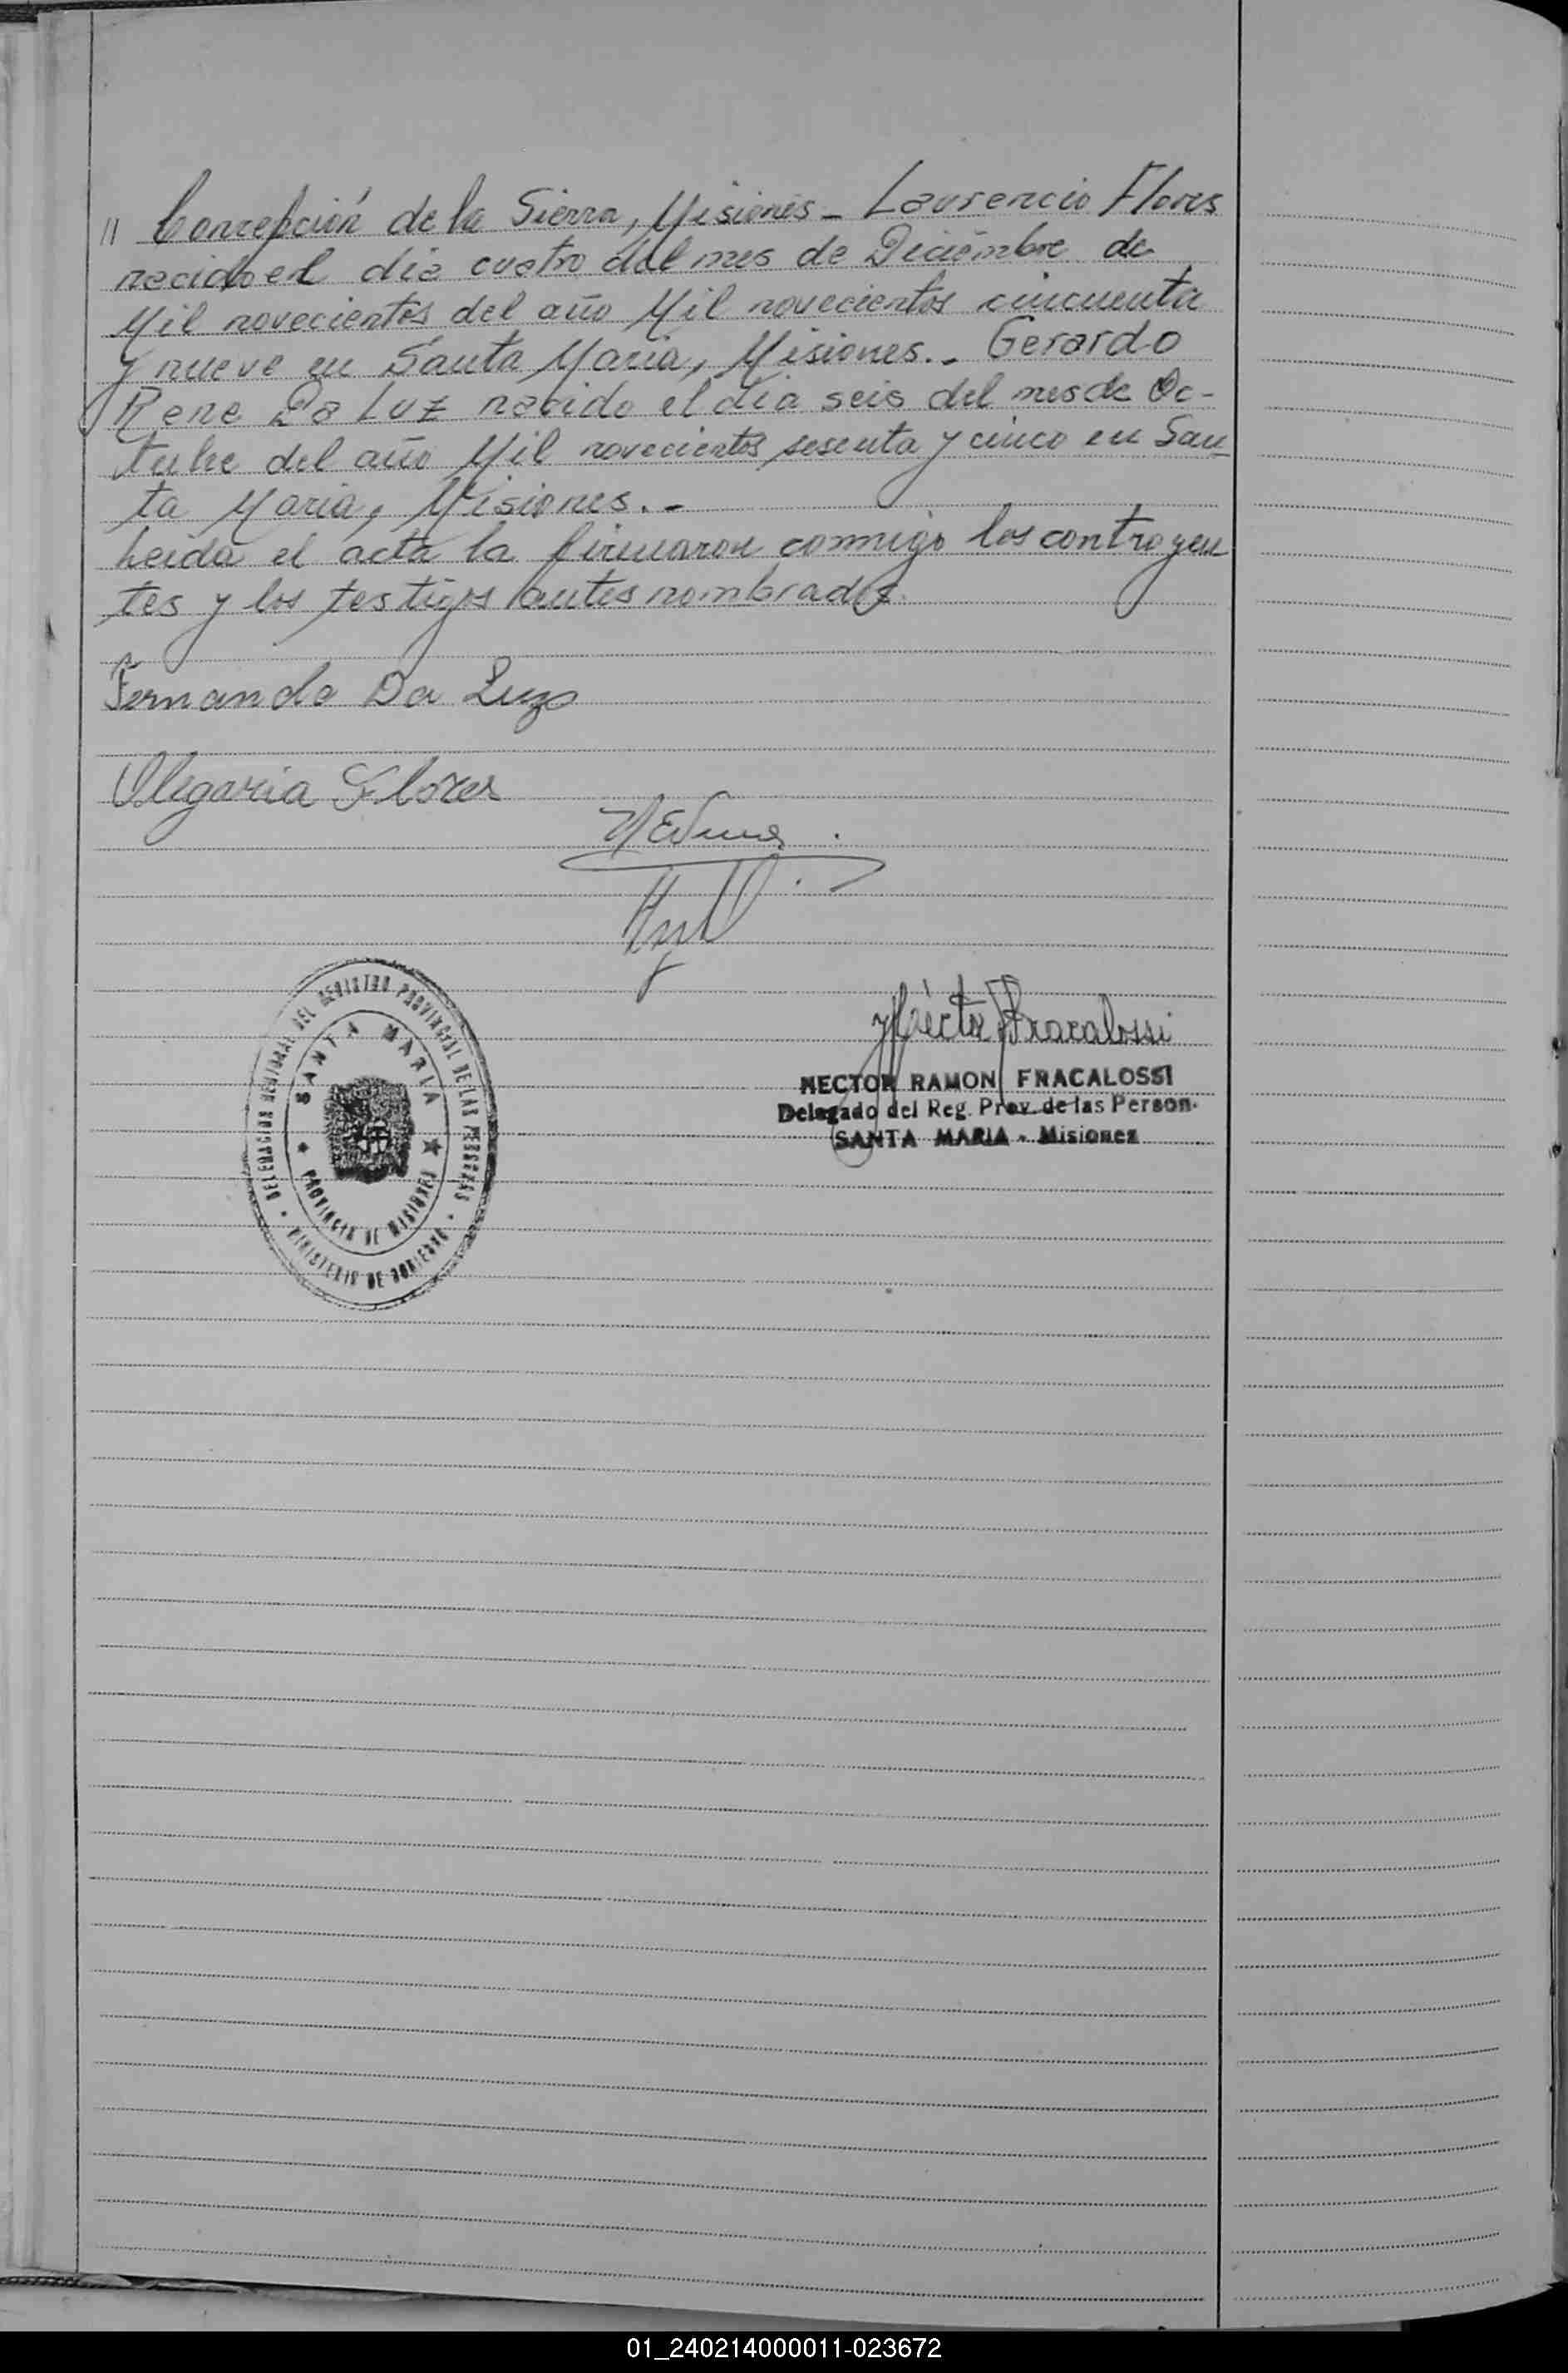 " Concepción de la Sierra, Misiones - Laurencio Flores
nacido el día cuatro del mes de Diciembre de
Mil novecientos del año Mil novecientos cincuenta
y nueve en Santa María, Misiones.- Gerardo
Rene Da Luz nacido el día seis del mes de Oc-
tubre del año Mil novecientos sesenta y cinco en San-
ta María, Misiones.-
Leída el acta la firmaron conmigo los contrayen
tes y los testigos antes nombrados.
Fernando Da Luz
Olegaria Flores
Héctor Fracalossi
HECTOR RAMON FRACALOSSI
Delegado del Reg. Prov. de las Person.
SANTA MARIA - Misiones
DELEGACION SECCIONAL DEL REGISTRO PROVINCIAL DE LAS PERSONAS
MINISTERIO DE GOBIERNO
SANTA MARIA
PROVINCIA DE MISIONES
01_240214000011-023672